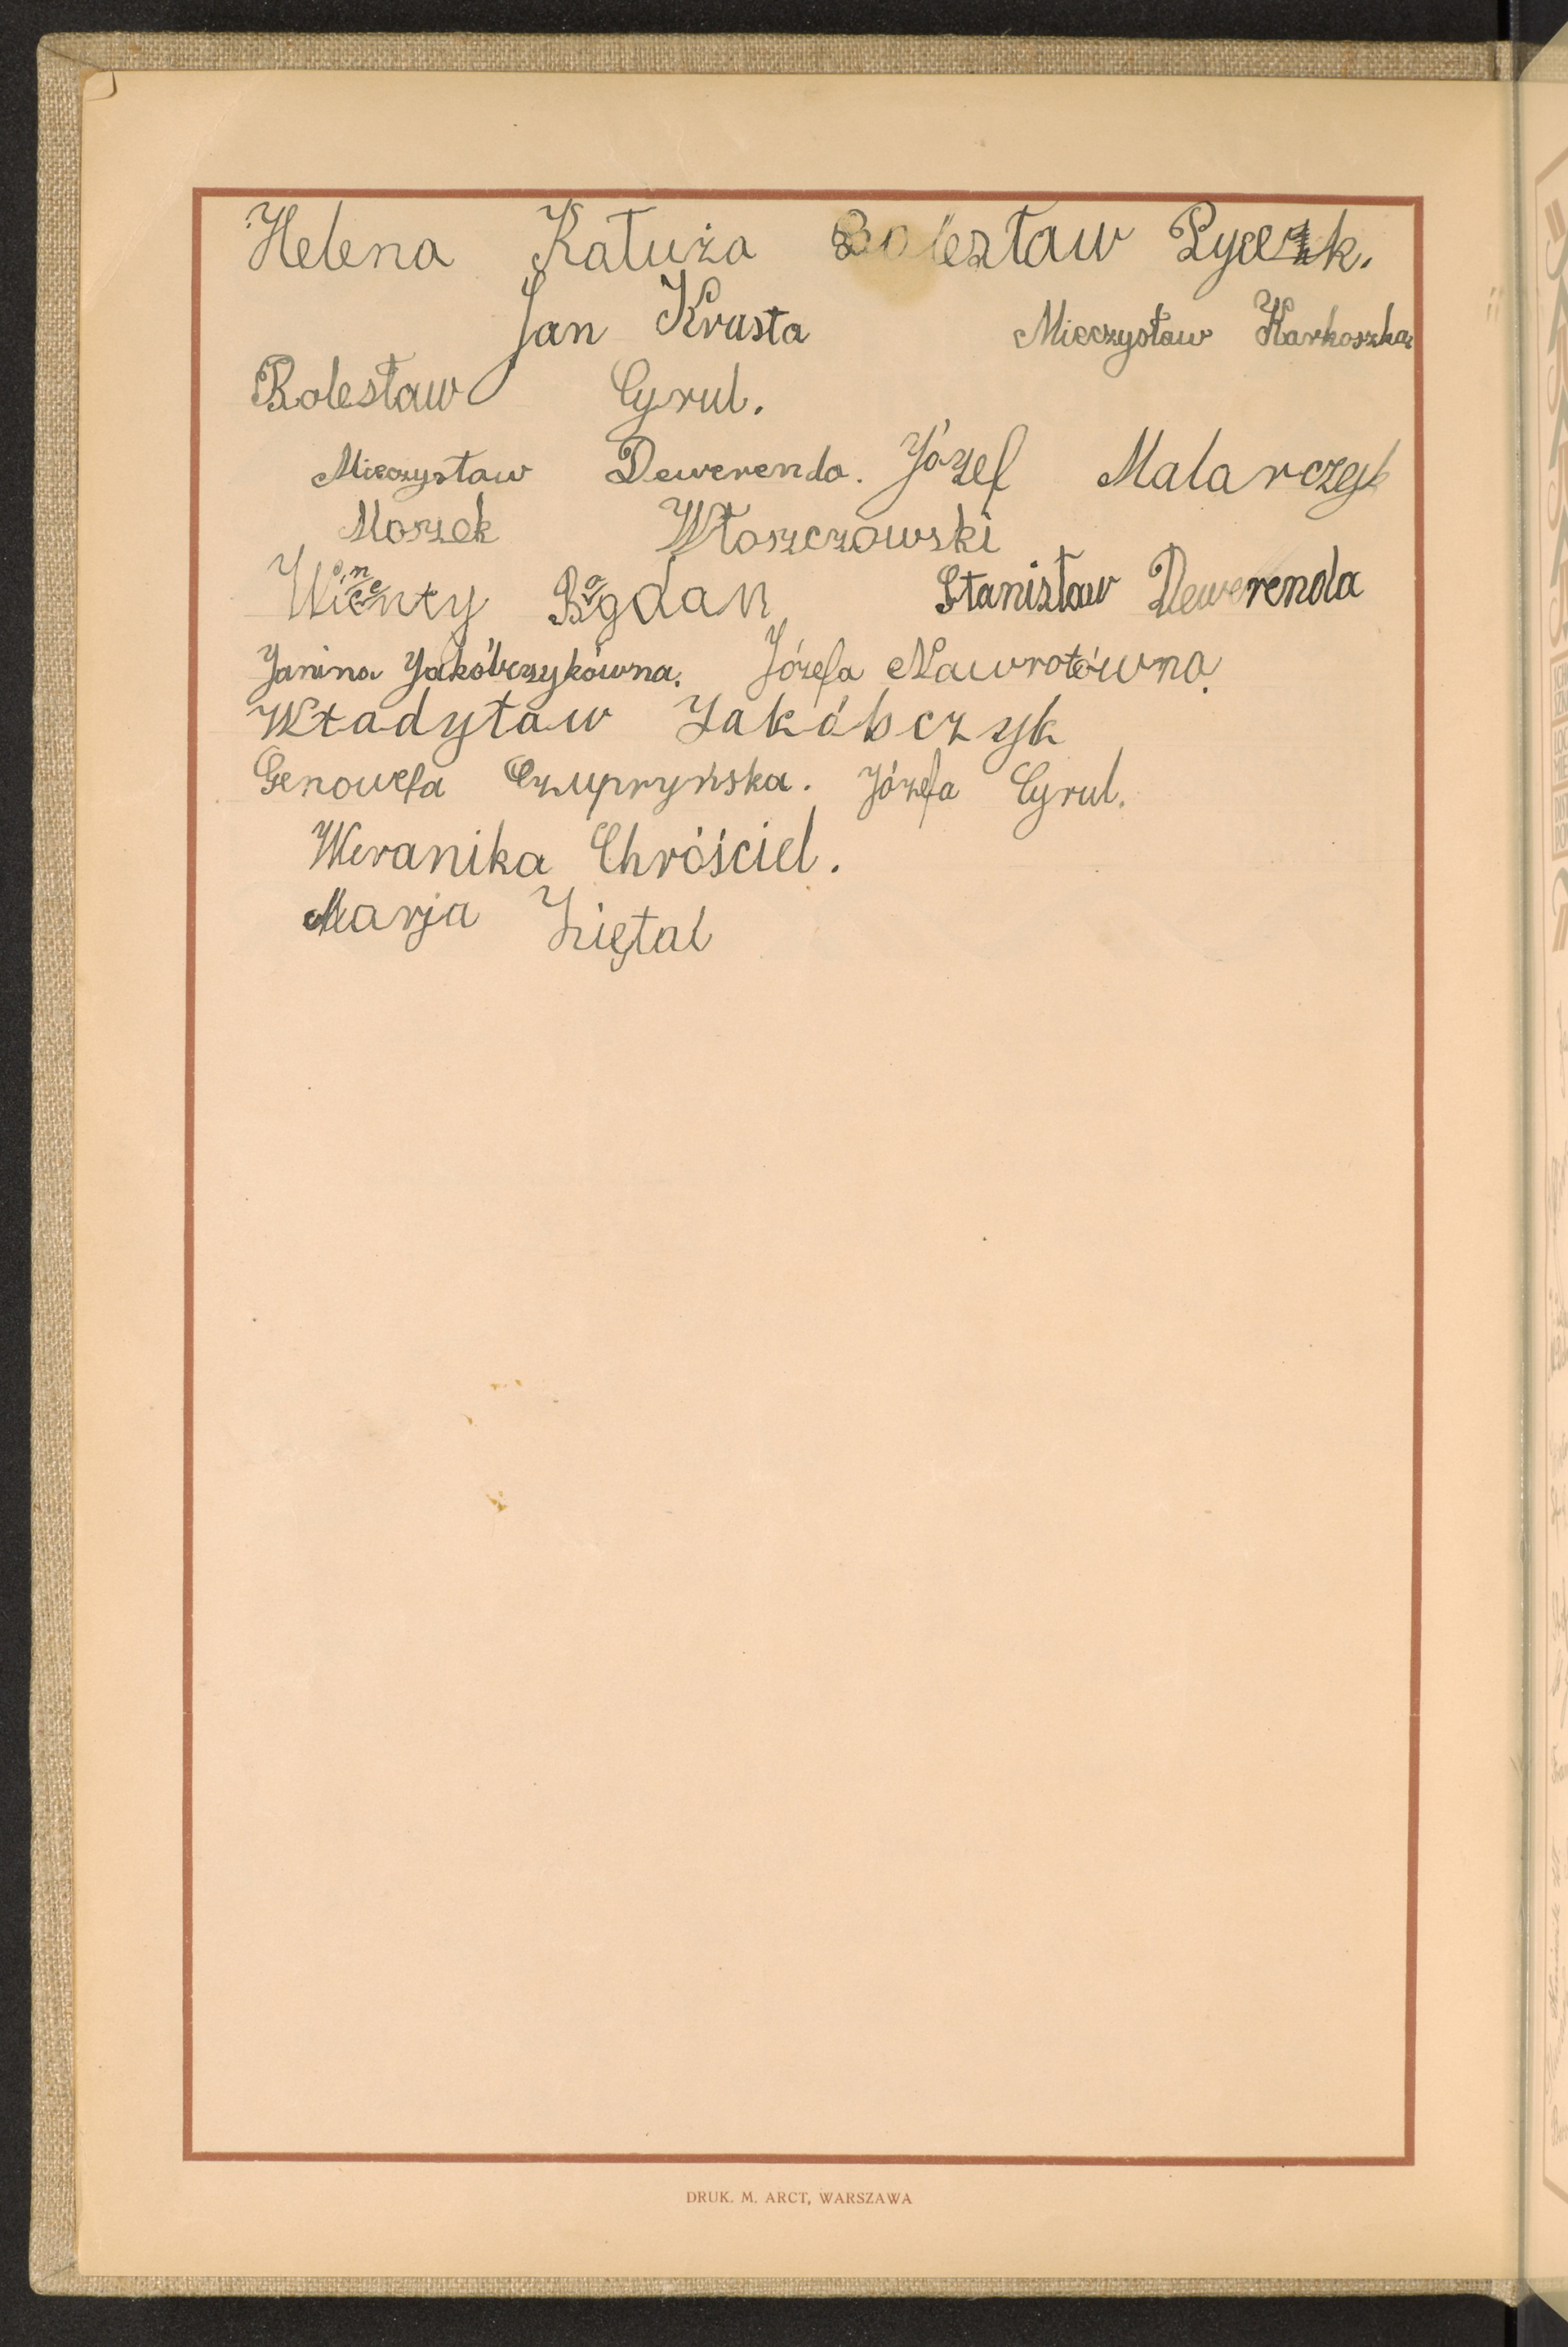 Helena Kałuża Bolesław
Jan Krusta Mieczysław Karkoszka
Bolesław Cyrul.
Mieczysław Dewerenda. Józef Malarczyk
Moszek Włoszczowski
Wincenty Bogdan Stanisław Dewerenda
Janina Jakóbczykówna. Józefa Nawrotówna.
Władytaw Jakóbczyk
Genowefa Czupryńska. Józefa Cyrul.
Weranika Chróściel.
Marja Ziętal
DRUK. M. ARCT, WARSZAWA